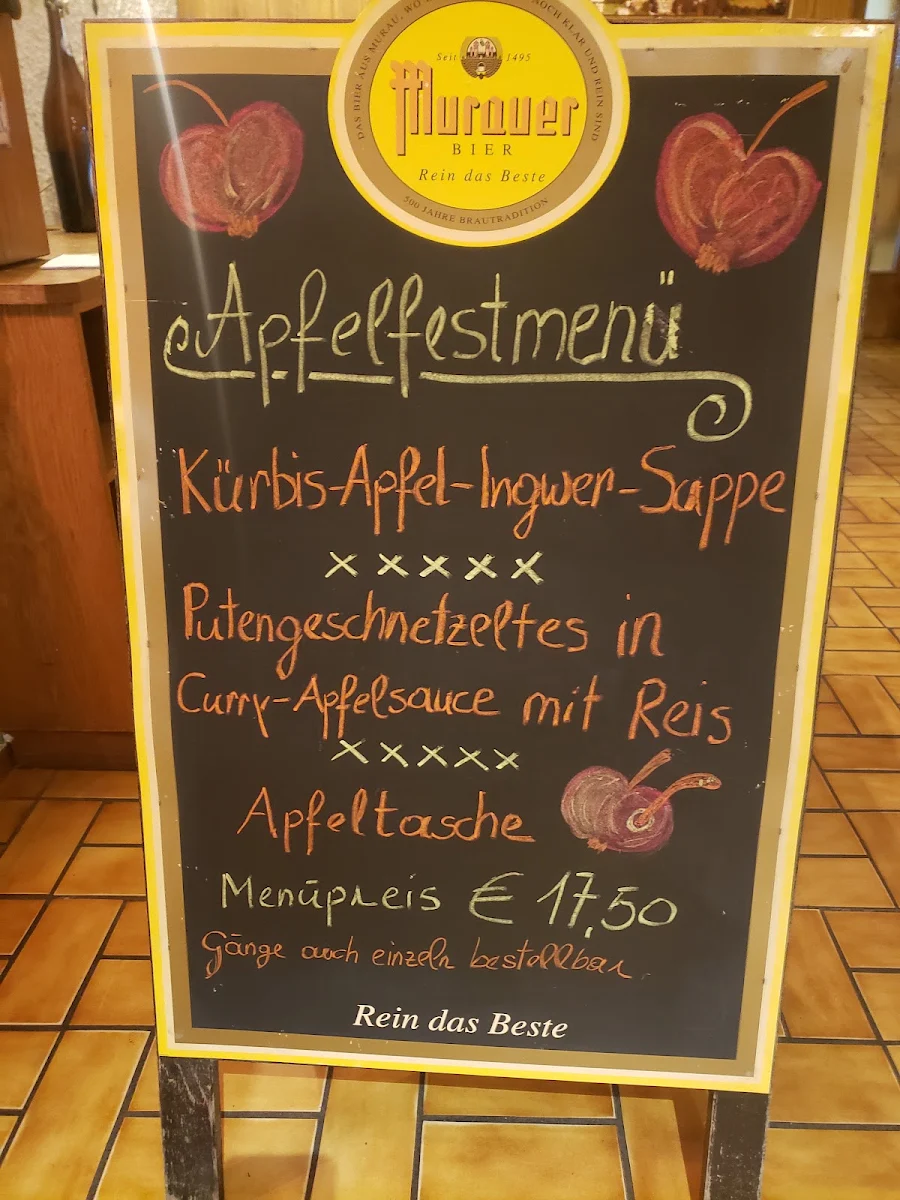 DAS BIER AUS MURAU, WO NOCH KLAR UND REIN SIND
Seit 1495
Murauer
BIER
Rein das Beste
500 JAHRE BRAUTRADITION
Apfelfestmenü
Kürbis-Apfel-Ingwer-Suppe
x x x x x
Putengeschnetzeltes in
Curry-Apfelsauce mit Reis
x x x x x
Apfeltasche
Menüpreis € 17,50
Gänge auch einzeln bestellbar.
Rein das Beste